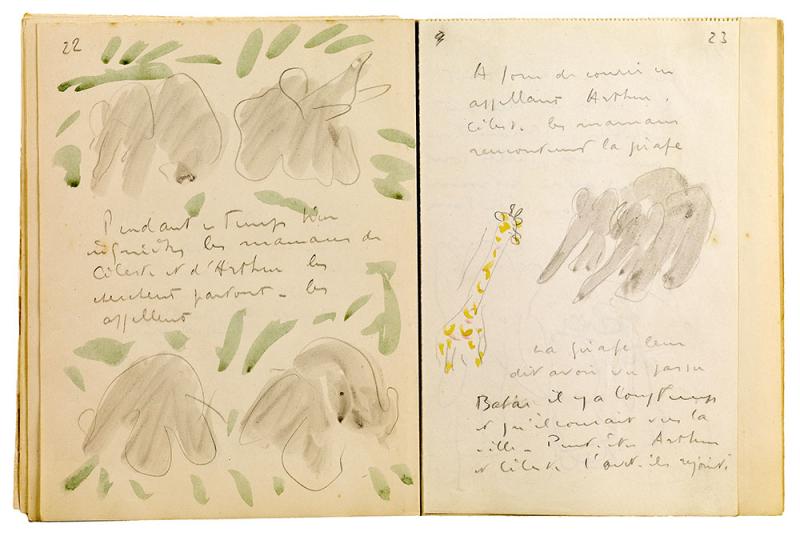 22
Pendant ce temps bien
inquiètes les mamans de
Céleste et d'Arthur les
cherchent partout - les
appellent
23
A force de courir en
appellant Arthur,
Céleste les mamans
rencontrent la girafe
La girafe leur
dit avoir vu passer
Babar il y a longtemps
et qu'il courait vers la
ville - Peut-être Arthur
et Céleste l'ont-ils rejoint